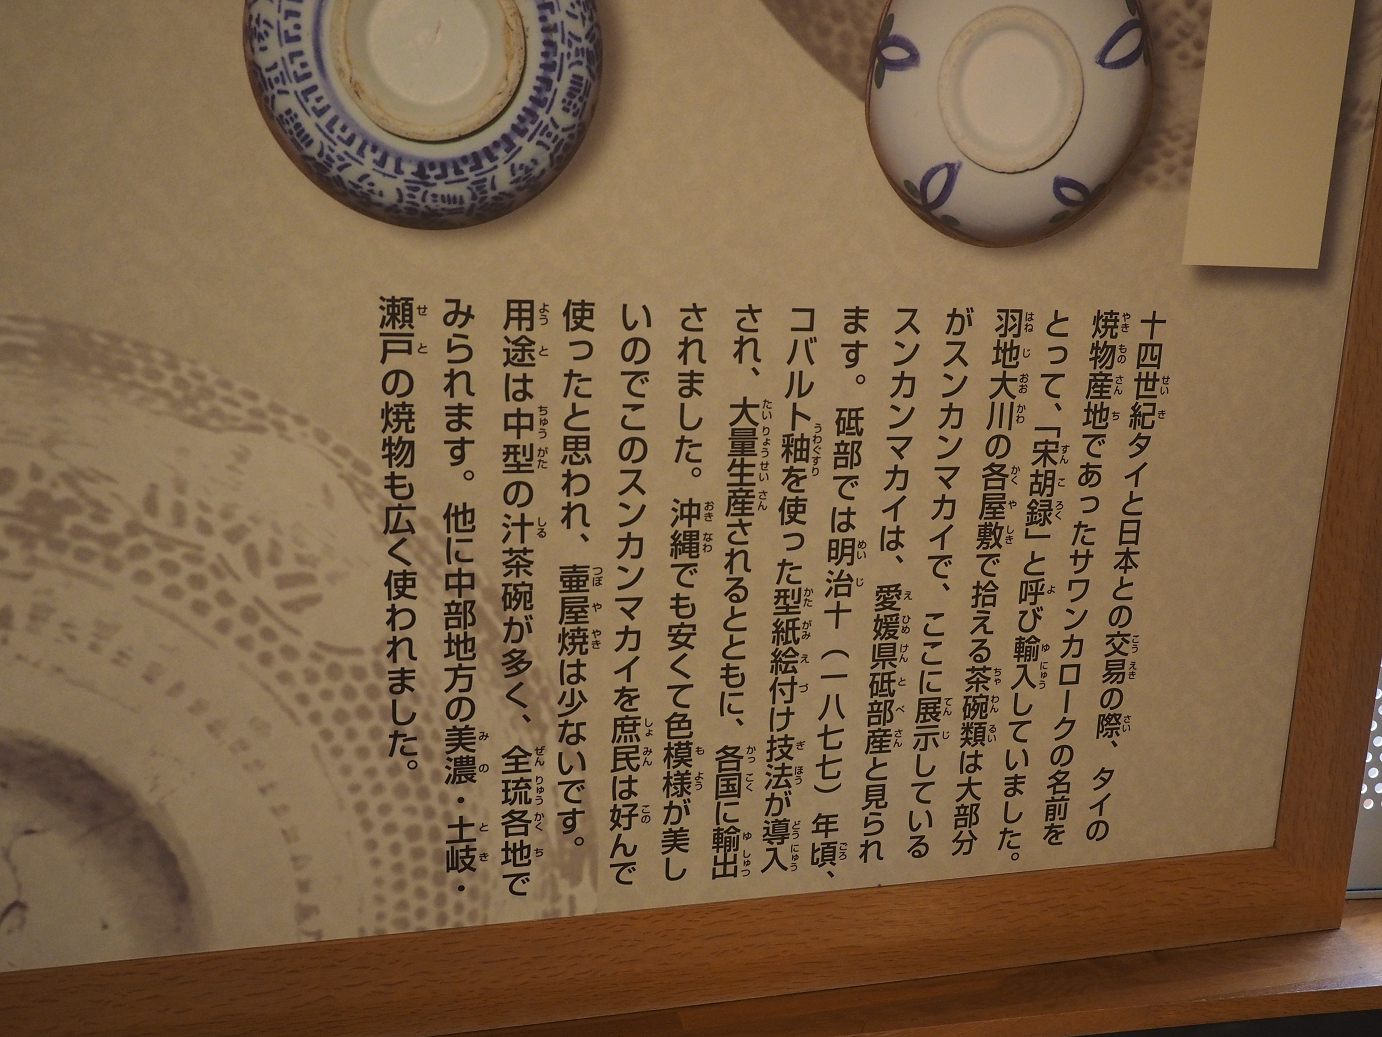 十四世紀タイと日本との交易の際、タイの
焼物産地であったサワンカロークの名前を
とって、「宋胡録」と呼び輸入していました。
羽地大川の各屋敷で拾える茶碗類は大部分
がスンカンマカイで、ここに展示している
スンカンマカイは、愛媛県砥部産と見られ
ます。砥部では明治十（一八七七）年頃、
コバルト釉を使った型紙絵付け技法が導入
され、大量生産されるとともに、各国に輸出
されました。沖縄でも安くて色模様が美し
いのでこのスンカンマカイを庶民は好んで
使ったと思われ、壷屋焼は少ないです。
用途は中型の汁茶碗が多く、全琉各地で
みられます。他に中部地方の美濃・土岐・
瀬戸の焼物も広く使われました。